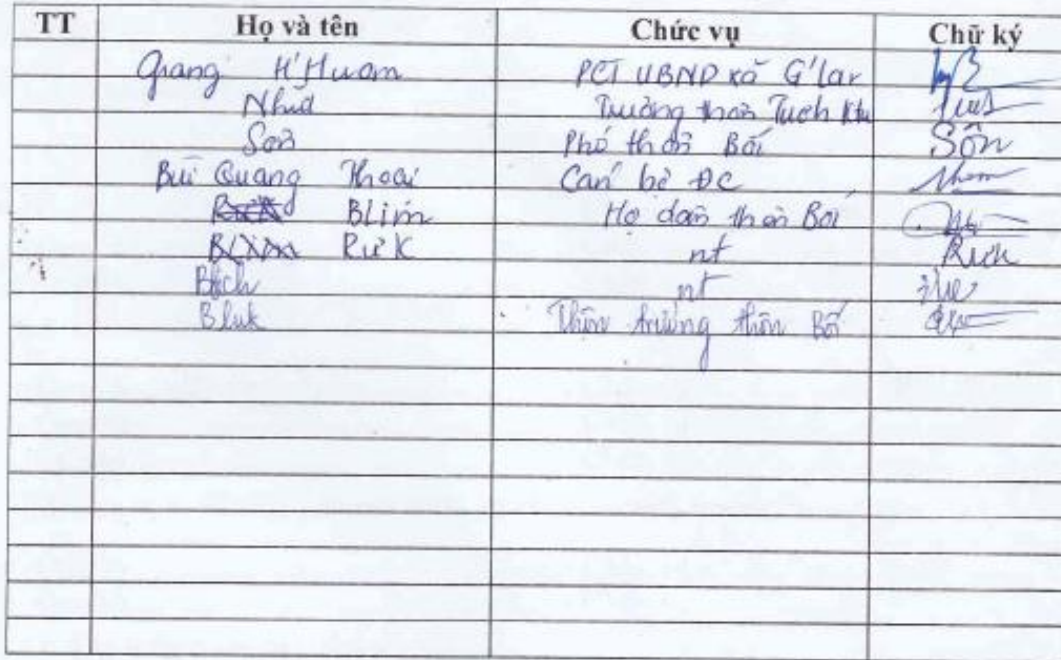 TT Họ và tên Chức vụ Chữ ký
Giang H'Huam PCT UBND xã G'lar
Nhưd Trưởng thôn Tuch Ktu
Sơn Phó thôn Bối Sôn
Bùi Quang Thoại Cán bộ ĐC
Blim Hộ dân thôn Bối
Rưk nt Rưk
Bích nt
Bluk Thôn trưởng thôn Bối